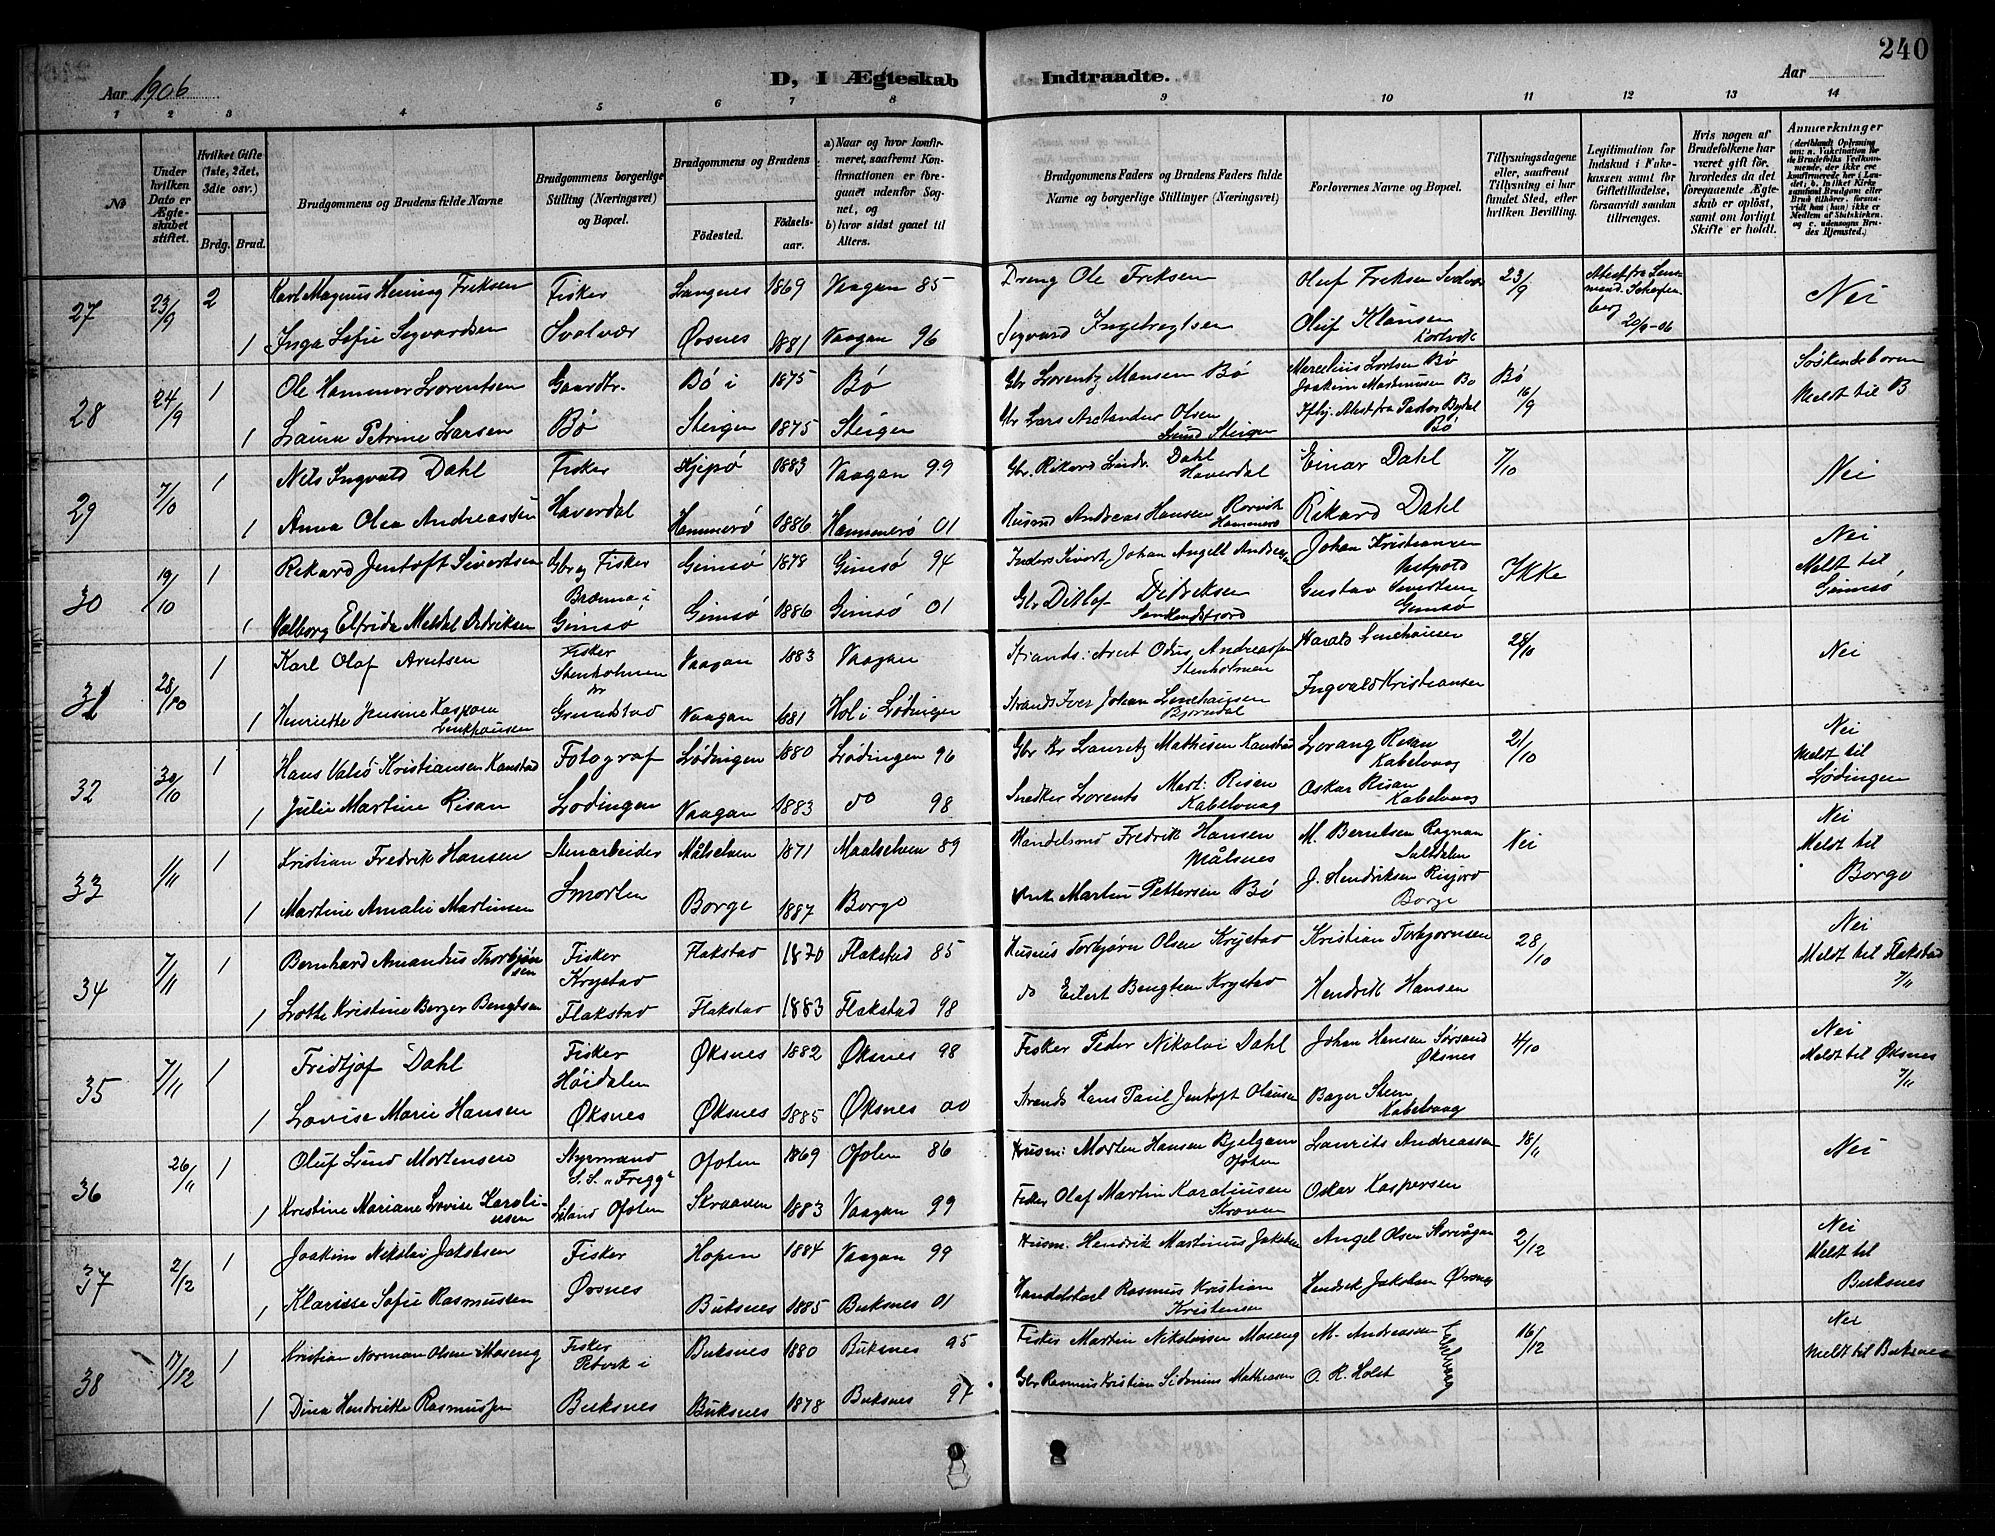 240
Aar 1906
D, I Ægteskab Indtraadte.
Aar
1 2 3 4 5 6 7 8 9 10 11 12 13 14
No
Under hvilken Dato er Ægteskabet stiftet.
Hvilket Gifte (1ste, 2det, 3die osv.)
Brdg. Brud.
Brudgommens og Brudens fulde Navne
Brudgommens borgerlige Stilling (Næringsvei) og Bopæl.
Brudgommens og Brudens
Fødested. Fødselsaar.
a) Naar og hvor konfirmeret, saafremt Konfirmationen er foregaaet udenfor Sognet, og
b) hvor sidst gaaet til Alters.
Brudgommens Faders og Brudens Faders fulde Navne og borgerlige Stillinger (Næringsvei)
Forlovernes Navne og Bopæl.
Tillysningsdagene eller, saafremt Tillysning ei har fundet Sted, efter hvilken Bevilling.
Legitimation for Indskud i Enkekassen samt for Giftetilladelse, forsaavidt saadan tiltrænges.
Hvis nogen af Brudefolkene har været gift før, hvorledes da det foregaaende Ægteskab er opløst, samt om lovligt Skifte er holdt.
Anmærkninger
(deriblandt Oplysning om: a. Vakcination for de Brudefolks Vedkommende, der ikke ere konfirmerede her i Landet; b. hvilken Kirkesamfund Brudgom eller Brud tilhører, forsaavidt han (hun) ikke er Medlem af Statskirken, og c. udensogns Brudes Hjemsted.)
27 23/9 2 Karl Magnus Henning Eriksen Fisker Langnes 1869 Vaagan 85 Dreng Ole Eriksen Oluf Eriksen Svolvær 23/9 Attest fra 20/9-06 Nei
1 Inga Sofie Sigvardsen Svolvær Ørsnes 1881 Vaagan 96 Sigvard Ingebregtsen Oluf Klausen
28 24/9 1 Ole Hammer Lorentsen Gaardbr. Bø i 1875 Bø Gbr Lorentz Monsen Bø Joakim Bø Bø 16/9 Søskendeborn Meldt til B
1 Laura Petrine Larsen Bø Steigen 1875 Steigen Gbr Lars Olsen Steigen Attest fra Pastor Bø
29 7/10 1 Nils Ingvald Dahl Fisker 1883 Vaagan 99 Gbr. Rikard Dahl Haverdal Einar Dahl 7/10 Nei
1 Anna Olea Andreassen Haverdal Hammerø 1886 Hammerø 01 Husmd Andreas Hansen Rorvik Hammerø Rikard Dahl
30 19/10 1 Rikard Jentoft Sivertsen Gbr og Fisker Gimsø 1878 Gimsø 94 Johan Angell Johan Kristiansen Ikke Nei Meldt til Gimsø
1 Valborg Elfrida Meldal Didriksen Brenna i Gimsø Gimsø 1886 Gimsø 01 Gbr Ditlef Didriksen Gustav Gimsø
31 28/10 1 Karl Olaf Arntsen Fisker Stenholmen Vaagan 1883 Vaagan Strands: Arnt Odin Andreassen Stenholmen Harald 28/10 Nei
1 Henriette Jensine Kaspara Vaagan 1881 Hol i Lødingen Strands Iver Johan Ingvald Kristiansen
32 30/10 1 Hans Valsø Kristiansen Kanstad Fotograf Lødingen 1880 Lødingen 96 Gbr Kr Lauritz Mathisen Kanstad Lorang Risan Kabelvaag 21/10 Nei Meldt til Lødingen
1 Julie Martine Risan Lødingen Vaagan 1883 do 98 Snedker Lorents Mart. Risan Kabelvaag Oskar Risan Kabelvaag
33 1/11 1 Kristian Fredrik Hansen Stenarbeider Målselven 1871 Maalselven 89 Handelsmd Fredrik Hansen Målsnes M. Berntsen Rognan Saltdalen Nei Nei Meldt til Borge
1 Martine Amalie Martinsen Smorten Borge 1887 Borge Martin Pettersen Bø J. Hendriksen Risjord Borge
34 7/11 1 Bernhard Amandus Thorbjørnsen Fisker Krystad Flakstad 1870 Flakstad 85 Husms Torbjørn Olsen Krystad Kristian Torbjørnsen 28/10 Nei Meldt til Flakstad 7/11
1 Lotte Kristine Berger Bengtsen Flakstad Flakstad 1883 Flakstad 98 do Eilert Bengtsen Krystad Hendrik Hansen
35 7/11 1 Fridtjof Dahl Fisker Høidalen Øksnes 1882 Øksnes 98 Fisker Peder Nikolai Dahl Johan Hansen Sørsand Øksnes 4/10 Nei Meldt til Øksnes 7/11
1 Lovise Marie Hansen Øksnes Øksnes 1885 Øksnes 00 Strands Hans Paul Jentoft Hansen Bager Steen Kabelvaag
36 26/11 1 Oluf Lund Mortensen Styrmand S.S. „Frigg" Ofoten 1869 Ofoten 86 Husm: Morten Hansen Ofoten Laurits Andreassen 18/11 Nei
1 Kristine Mariane Lovise Karoliussen Liland Ofoten Skraaven 1883 Vaagan 99 Fisker Olaf Martin Karoliussen Skroven Oskar Kaspersen
37 2/12 1 Joakim Nikolai Jakobsen Fisker Hopen 1884 Vaagan 99 Husm. Hendrik Martinus Jakobsen Angel Olsen Storvågan 2/12 Nei Meldt til Buksnes
1 Klarisse Sofie Rasmussen Ørsnes Buksnes 1885 Buksnes 01 Handelskarl Rasmus Kristian Kristensen Hendrik Jakobsen Ørsnes
38 17/12 1 Kristian Norman Olsen Moseng Fisker Petvik i Buksnes 1880 Buksnes 95 Fisker Martin Nikolaisen Moseng M. Andreassen 16/12 Nei Meldt til Buksnes
1 Dina Hendrikke Rasmussen Buksnes Buksnes 1878 Buksnes 94 Gbr Rasmus Kristian Sidenius Mathiassen O. R. Holst